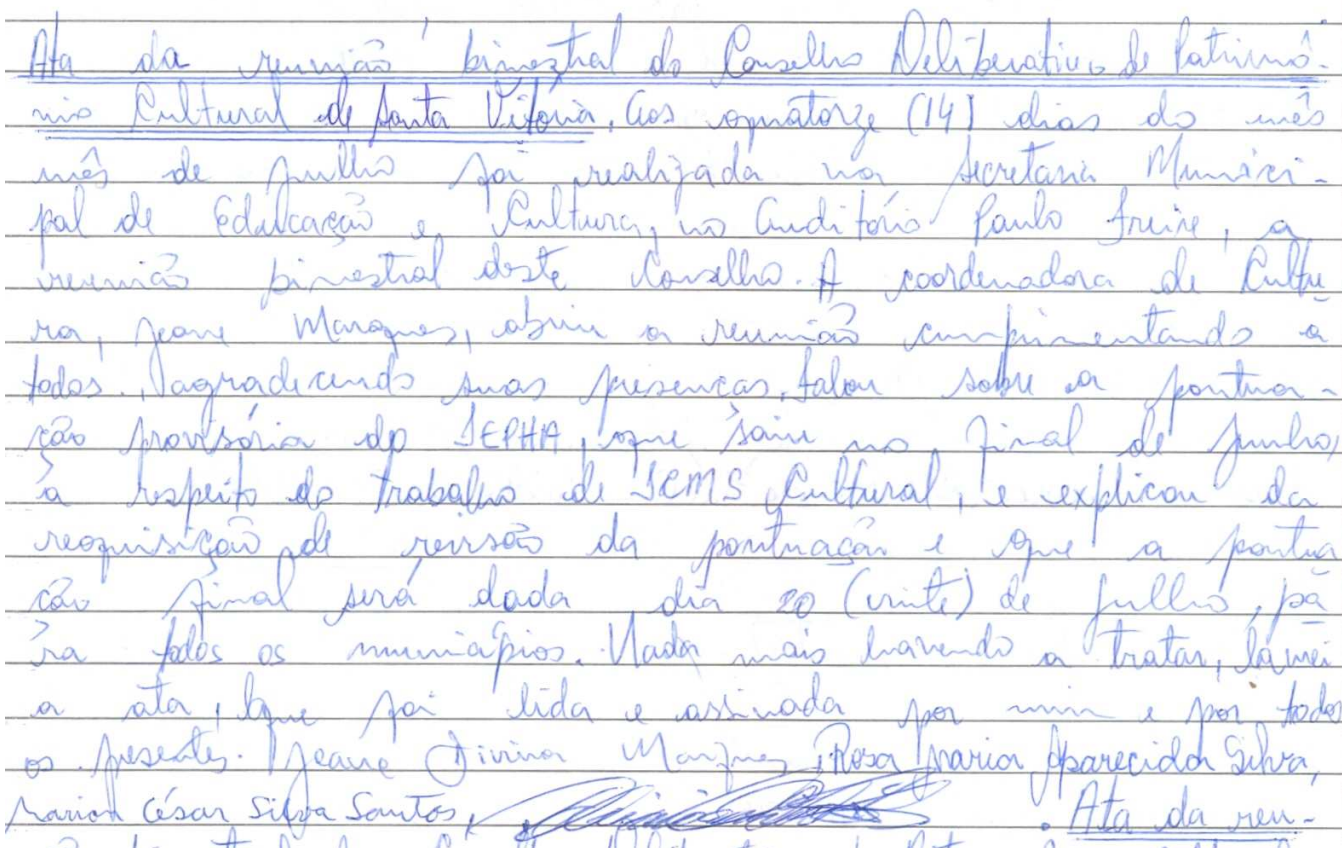 Ata da reunião bimestral do Conselho Deliberativo de Patrimô-
nio Cultural de Santa Vitória. Aos quatorze (14) dias do mês
mês de julho foi realizada na Secretaria Munici-
pal de Educação e Cultura, no Auditório Paulo Freire, a
reunião bimestral deste Conselho. A coordenadora de Cultu
ra, Jeane Marques, abriu a reunião cumprimentando a
todos, agradecendo suas presenças. Falou sobre a pontua-
ção provisória do IEPHA, que saiu no final de junho,
à respeito do trabalho de ICMS Cultural, e explicou da
requisição de revisão da pontuação e que a pontua
ção final será dada dia 20 (vinte) de julho, pa
ra todos os municípios. Nada mais havendo a tratar, lavrei
a ata, que foi lida e assinada por mim e por todos
os presentes. Jeane Divina Marques, Rosa Maria Aparecida Silva,
Marion César Silva Santos, . Ata da reu-